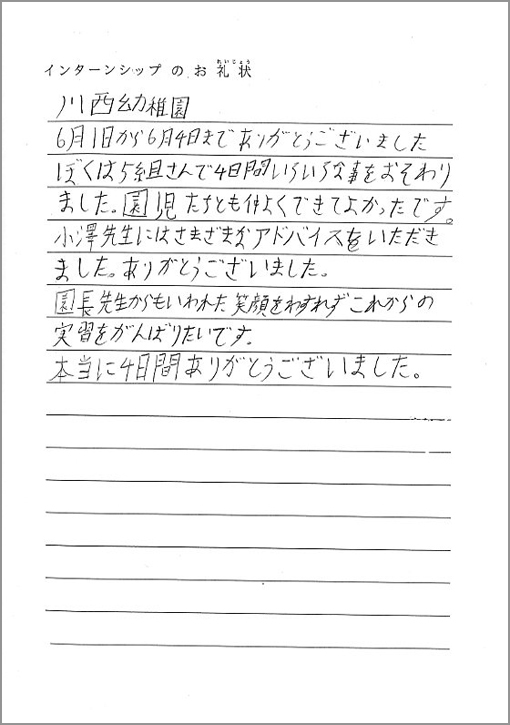 インターンシップ の お 礼 状
れいじょう
川西幼稚園
6月1日から6月4日まで ありがとうございました
ぼくは5組さんで4日間いろいろな事をおそわり
ました。園児たちとも仲よくできてよかったです。
小澤先生にはさまざまなアドバイスをいただき
ました。ありがとうございました。
園長先生からもいわれた笑顔をわすれずこれからの
実習をがんばりたいです。
本当に4日間ありがとうございました。